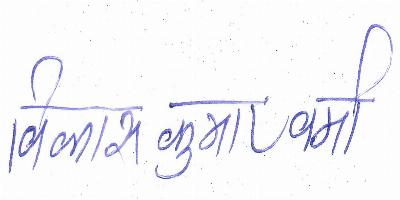 विकाश कुमार वर्मा